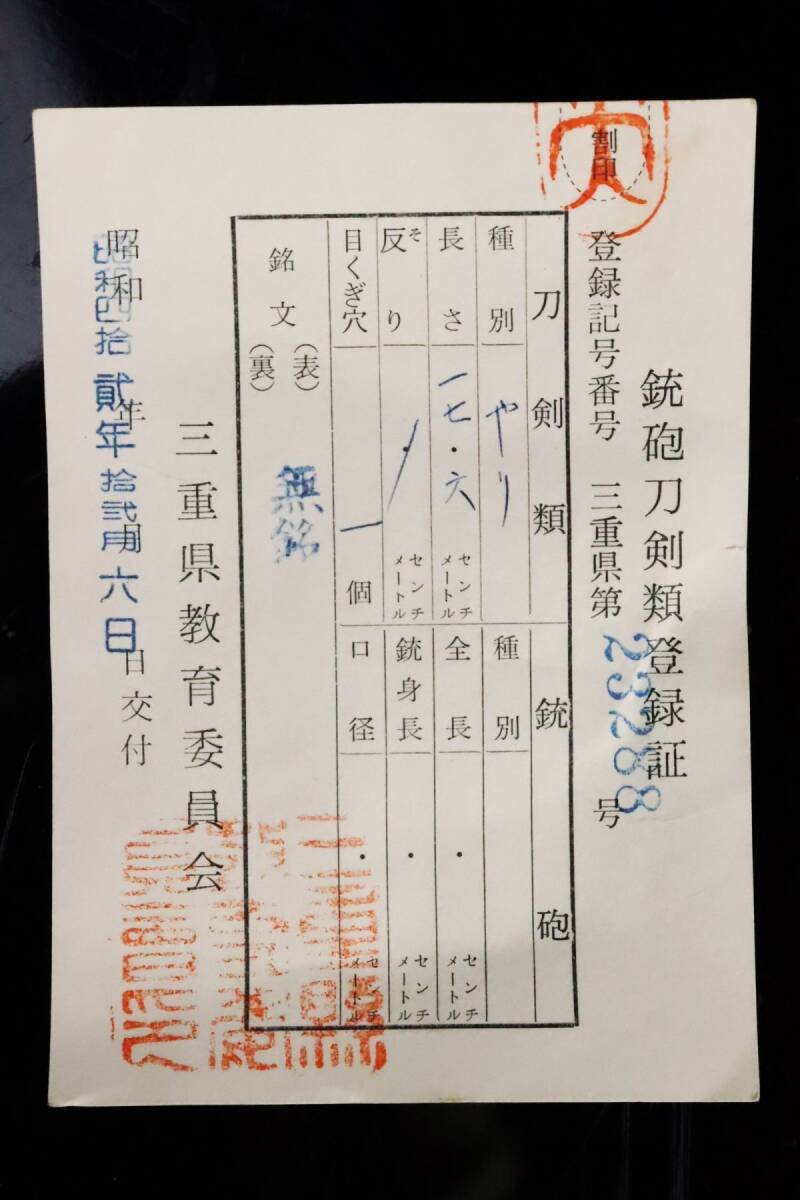 割印
銃砲刀剣類登録証
登録記号番号 三重県第23288号
刀剣類
種別 やり
長さ 一七・六 センチメートル
反り そ ・ センチメートル
目くぎ穴 一 個
銃砲
種別
全長 ・ センチメートル
銃身長 ・ センチメートル
口径 ・ センチメートル
銘文 (表) 無銘
(裏)
三重県教育委員会
昭和 年 月 日交付
昭和四拾貳年拾弐月六日